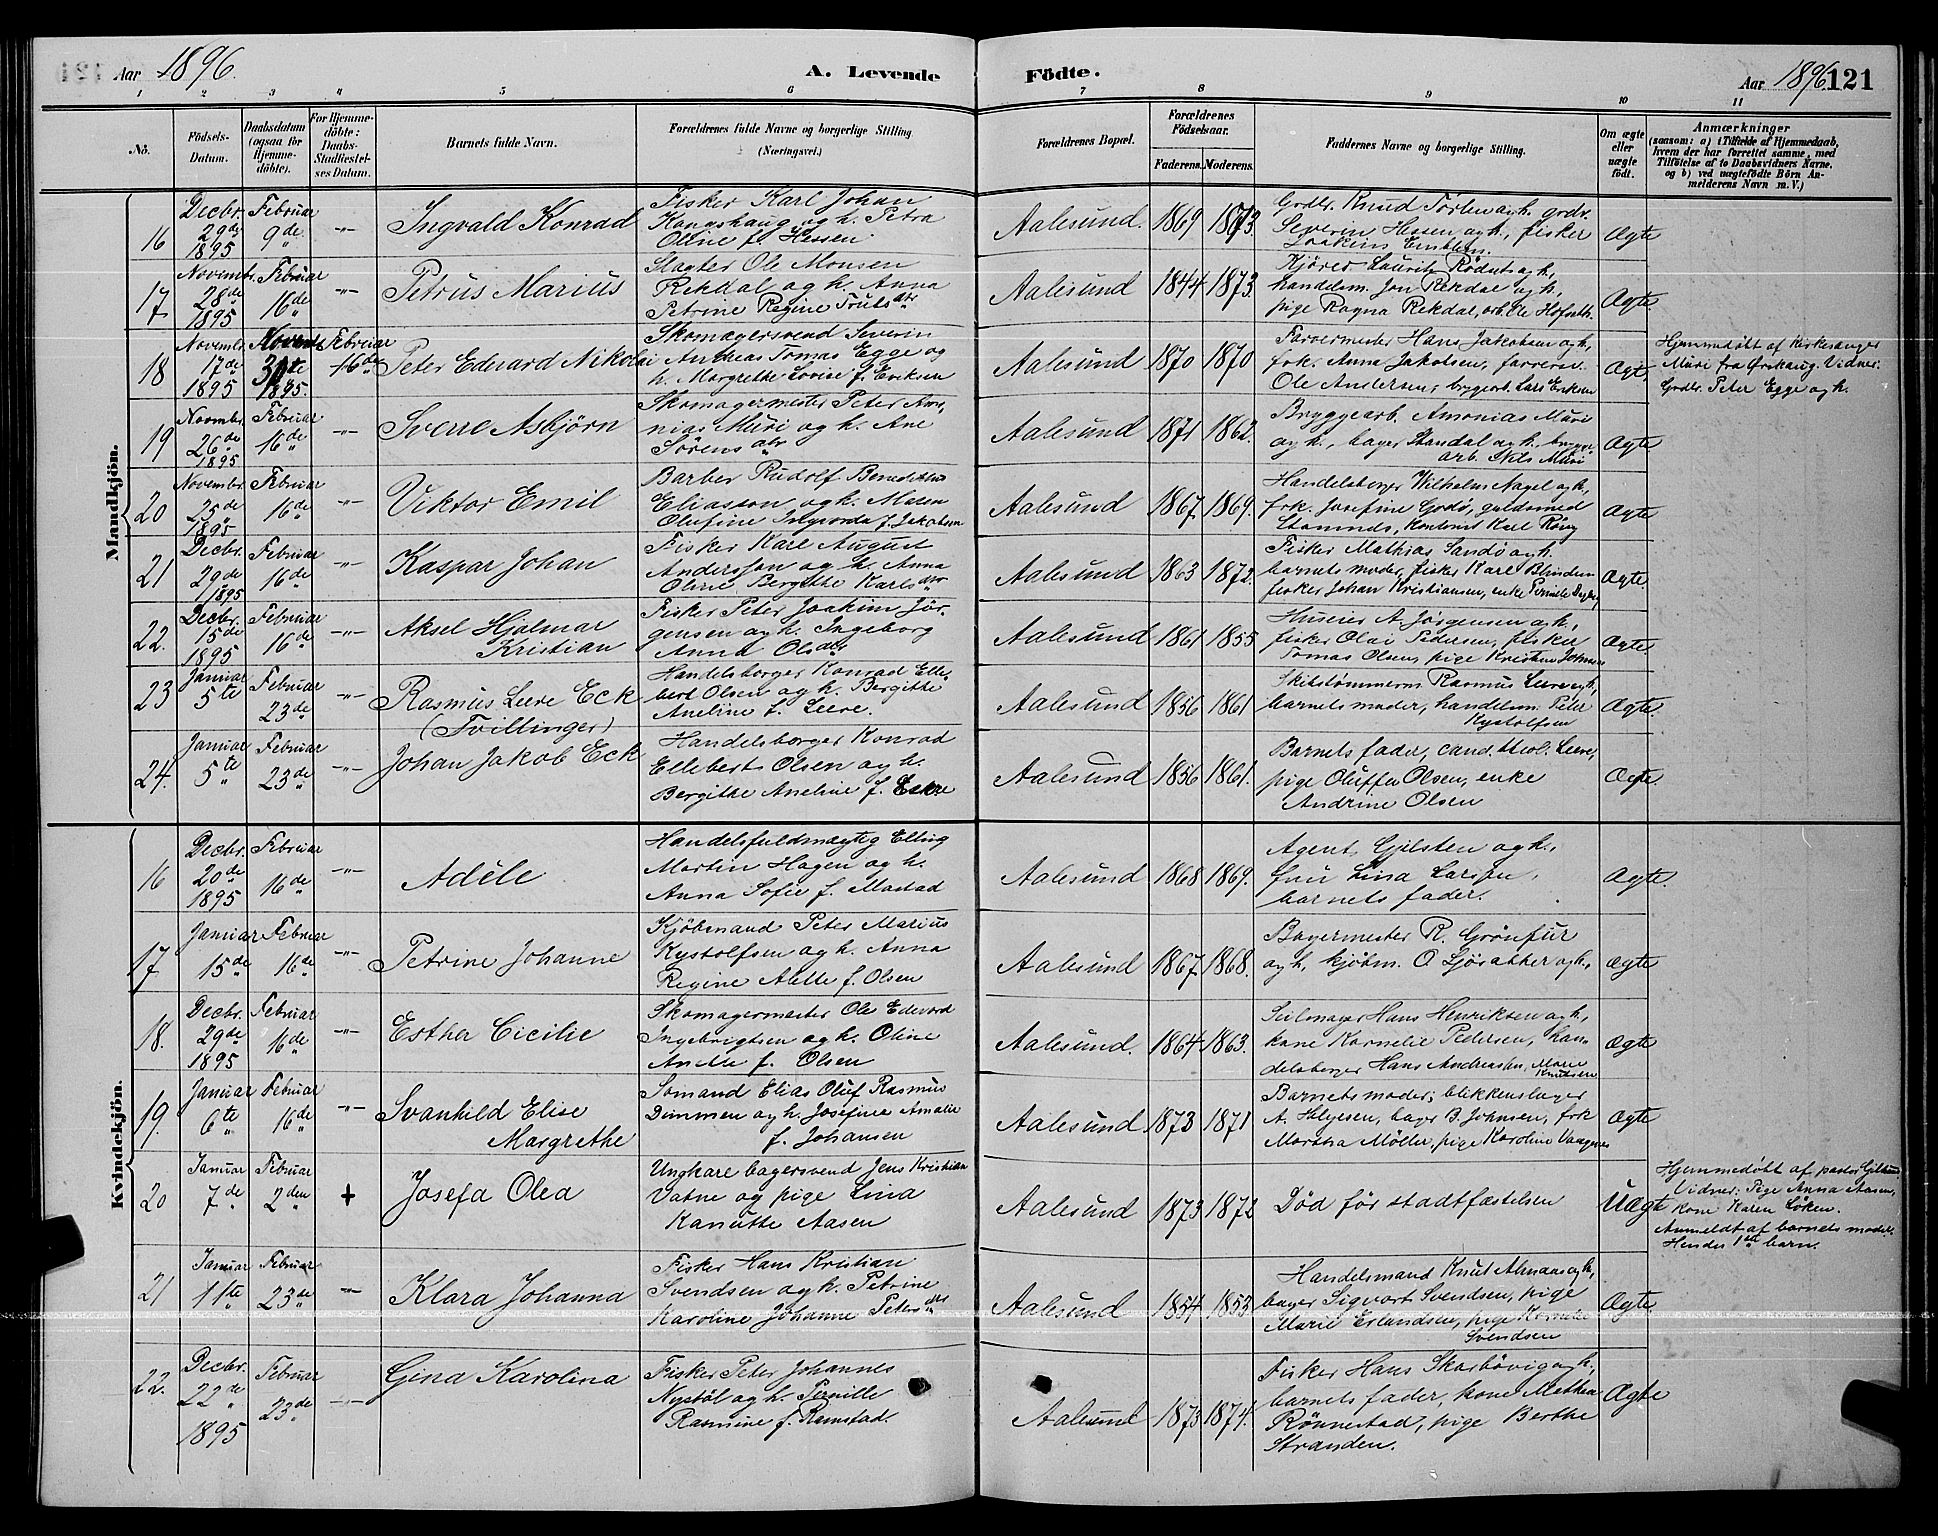 Aar 1896. A. Levende Födte. Aar 1896. 121
1 2 3 4 5 6 7 8 9 10 11
No.
Födsels-Datum.
Daabsdatum (ogsaa for Hjemmedöbte).
For Hjemmedöbte: Daabs-Stadfæstelses Datum.
Barnets fulde Navn.
Forældrenes fulde Navne og borgerlige Stilling. (Næringsvei.)
Forældrenes Bopæl.
Forældrenes Födselsaar.
Faderens. Moderens.
Faddernes Navne og borgerlige Stilling.
Om ægte eller uægte födt.
Anmærkninger
(saasom: a) i Tilfælde af Hjemmedaab, hvem der har forrettet samme, med Tilföielse af to Daabsvidners Navne. og b) ved uægtefödte Börn Anmelderens Navn m. V.)
Mandkjön.
16 Decbr. 29de 1895 Februar 9de -"- Ingvald Konrad
Fisker Karl Johan
Kongshaug og h. Petra
Oline f. Hessen
Aalesund. 1869 1873.
Severin Hessen og h., fisker
Joakim Emblem.
Ægte
17 Novembr. 28de 1895 Februar 16de -"- Petrus Marius
Slagter Ole Monsen
Rekdal og h. Anna
Petrine Regine Trulsdtr
Aalesund 1844 1873.
Kjörer Laurits Rödset og h,
handelsm. Jon Rekdal og h,
pige Ragna Rekdal, arb. Ole Hofseth.
Ægte.
18 Novembr. 17de 1895 30te 1895. Februar 16de Peter Edvard Nikolai
Skomagersvend Severin
Andreas Tomas Egge og
h. Margrethe Lovise f. Eriksen
Aalesund 1870 1870
Farvermester Hans Jakobsen og h,
frk. Anna Jakobsen, farversv.
Ole Andersen, bryggearb. Lars Eriksen
Ægte.
Hjemmedöbt af kirkesanger
Muri fra Ørskaug. Vidner:
Grdbr. Peter Egge og h.
19 Novmbr. 26de 1895 Februar 16de -"- Sverre Asbjörn
Skomagermester Peter Amo,
nias Muri og h. Ane
Sörensdtr
Aalesund 1871 1862.
Bryggearb. Amonias Muri
og h., bager Standal og h., brygge
arb. Nils Muri
Ægte
20 Novembr. 25de 1895 Februar 16de -"- Viktor Emil
Barber Rudolf Benediktus
Eliasson og h. Maren
Olufine Ingvarda f. Jakobsen
Aalesund 1867. 1869.
Handelsborger Wilhelm Nagel og h,
frk. Josefine Godö, guldsmed
Ægte
21 Decbr. 29de 1895 Februar 16de -"- Kaspar Johan
Fisker Karl August
Andersson og h. Anna
Oline Bergitte Karlsdtr
Aalesund 1863 1872.
Fisker Mathias Sandö og h.
barnets moder, fisker Karl Blindem
fisker Johan Kristiansen, enke Pernille
Ægte.
22. Decbr. 15de 1895 Februar 16de -"- Aksel Hjalmar
Kristian
Fisker Peter Joakim Jör-
gensen og h. Ingeborg
Anna Olsdtr
Aalesund 1861 1855
Huseier A. Jörgensen og h,
fisker Olai Pedersen, fisker
Tomas Olsen, pige Kristine Johnsen
Ægte.
23 Januar 5te Februar 23de -"- Rasmus Leere Eck
(Tvillinger)
Handelsborger Konrad Elle-
bert Olsen og h. Bergitte
Aneline f. Leere.
Aalesund 1856 1861
Skibstömmerm. Rasmus Leere og h,
barnets moder, handelsm. Peter
Kystolfsen
Ægte.
24. Januar 5te Februar 23de -"- Johan Jakob Eck
Handelsborger Konrad
Elleberts Olsen og h.
Bergitte Aneline f.
Aalesund 1856 1861.
Barnets fader, cand. theol. Leere,
pige Oluffa Olsen, enke
Andrine Olsen
Ægte.
Kvindekjön.
16 Decbr. 20de 1895 Februar 16de -"- Adéle
Handelsfuldmægtig Elling
Martin Hagen og h.
Anna Sofie f. Mostad
Aalesund 1868 1869.
Agent Gjelsten og h.,
fru Lina Larsen,
barnets fader.
Ægte.
17 Januar 15de Februar 16de -"- Petrine Johanne
Kjöbmand Peter Marius
Kystolfsen og h. Anna
Regine Alette f. Olsen
Aalesund 1867. 1868.
Bagermester R. Grönfur
og h, kjöbm. O. Sjöbakker og h.,
Ægte
18. Decbr. 29de 1895 Februar 16de -"- Esther Cicilie
Skomagermester Ole Edevard
Ingebrigtsen og h. Oline
f. Olsen
Aalesund. 1864 1863.
Seilmager Hans Henriksen og h,
kone Kornelie Pedersen, han-
delsborger Hans Andreas hu, Marie
Knutsen
Ægte
19. Januar 6te Februar 16de -"- Svanhild Elise
Margrethe
Sömand Elias Oluf Rasmus
Dimmen og h. Josefine Amalie
f. Johansen
Aalesund 1873 1871
Barnets moder; blikkenslager
A. Helgesen, bager B. Johnsen, frk
Martha Möller, pige Karoline Vaagnes
Ægte
20 Januar 7de Februar 2den + Josefa Olea
Ungkarl bagersvend Jens Kristian
Vatne og pige Lina
Kanutte Aasen
Aalesund 1873 1872
Död för stadtfæstelsen
Uægte
Hjemmedöbt af pastor
Vidner: Pige Anna Aasen,
kone Karen Löken.
Anmeldt af barnets moder.
Hendes 1ste barn.
21 Januar 11te Februar 23de -"- Klara Johanna
Fisker Hans Kristian
Svendsen og h. Petrine
Karoline Johanne Petersdtr
Aalesund 1854 1853
Handelsmand Knut Almaas og h,
bager Sigvart Svendsen, pige
Marie Erlandsen, pige Kornelie
Svendsen
Ægte.
22. Decbr. 22de 1895 Februar 23de -"- Gina Karolina
Fisker Peter Johannes
Nystöl og h. Pernille
Rasmine f. Ramstad.
Aalesund 1873 1874.
Fisker Hans Skarbövig og h.
barnets fader, kone Mathea
Rönnestad, pige Berthe
Stranden.
Ægte